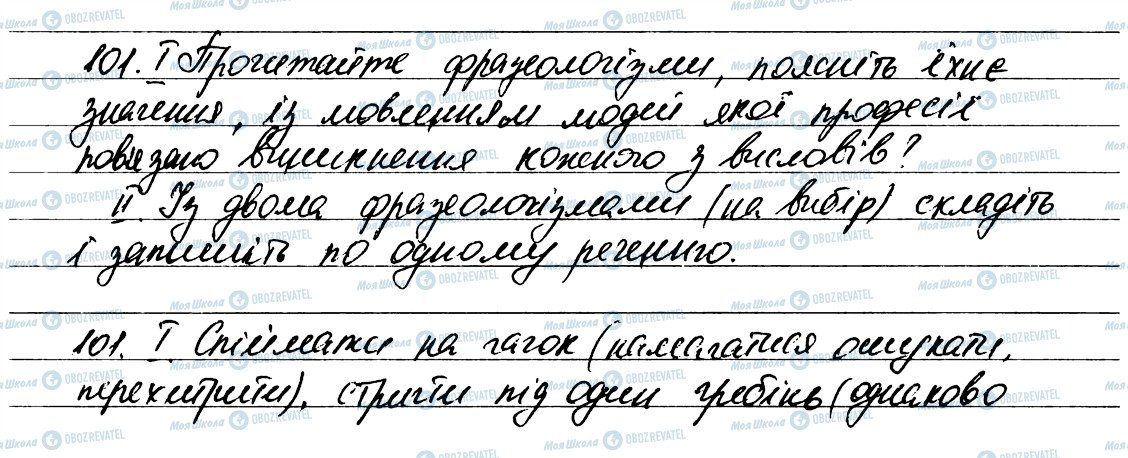 101. І Прочитайте фразеологізми, поясніть їхнє
значення, із мовленням людей якої професії
пов'язано виникнення кожного з висловів?
II. Із двома фразеологізмами (на вибір) складіть
і запишіть по одному реченню.
101. І Спіймати на гачок (намагатися ошукати,
перехитрити), стригти під один гребінь (однаково